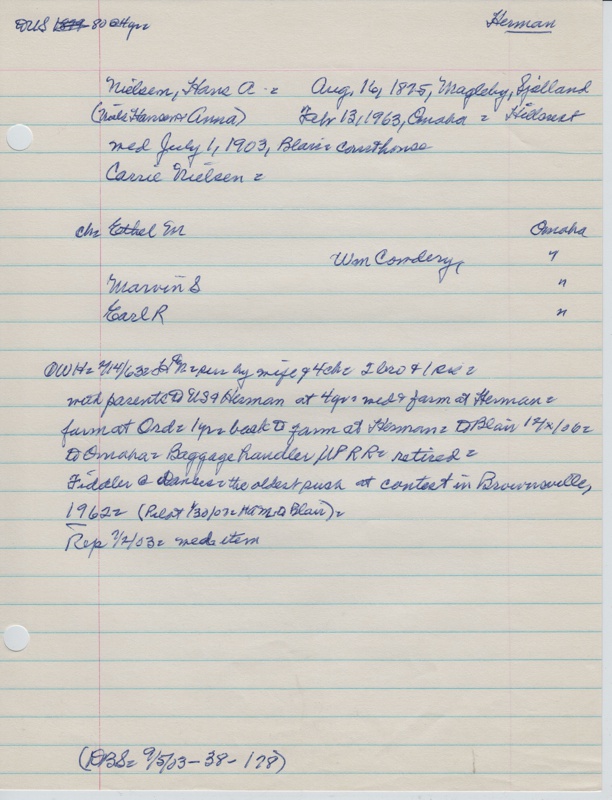 DUS 1879-80 @ 4yr= Herman
Nielsen, Hans A = Aug, 16, 1875, Magleby, Sjelland
(Niels Hansen & Anna) Febr 13, 1963, Omaha = Hillcrest
med July 1, 1903, Blair= courthouse
Carrie Nielsen =
ch= Ethel M Omaha
Wm Comdery, "
Marvin S "
Earl R "
by wife & 4 ch= 2 bro & 1 sis=
with parents to US & Herman at 4yr= med & farm at Herman=
farm at Ord= 1yr= back to farm at Herman= to Blair
to Omaha= Baggage handler UPRR= retired=
Fiddler @ Dances= the oldest at contest in Brownsville,
1962= (Pilot 1/30/07= Blair)=
Rep 7/2/03= med item
(DBS= 9/5/03-38-178)